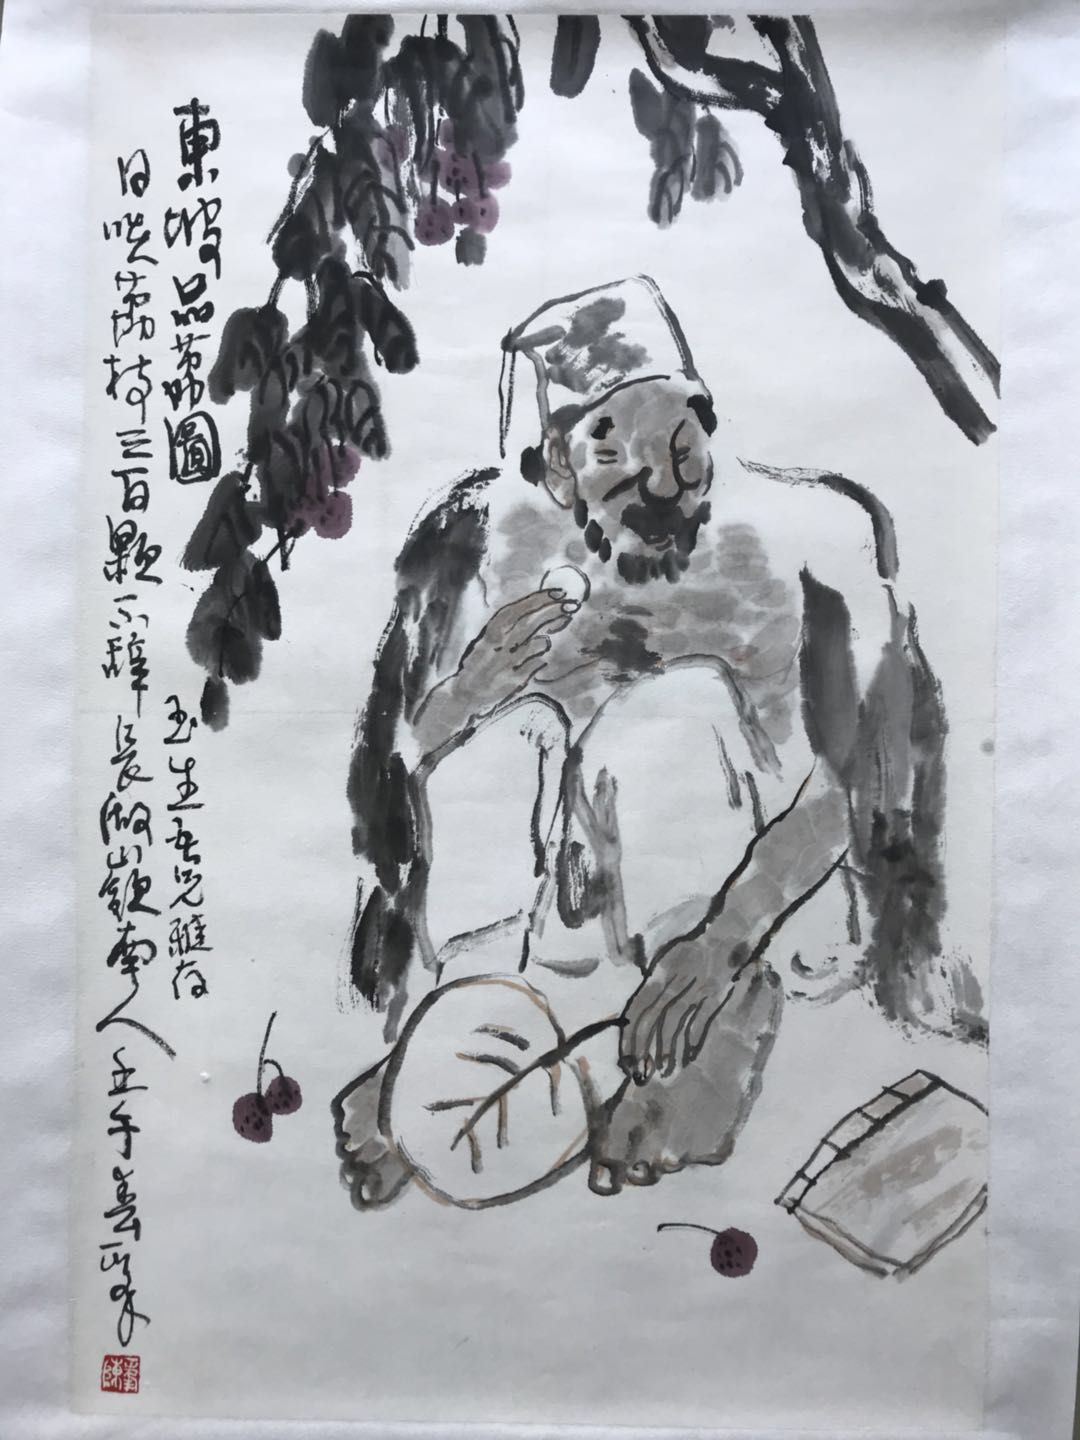 東坡品荔圖
日啖荔枝三百顆不辞長做嶺南人 壬午春
玉生吾兄雅存
陳